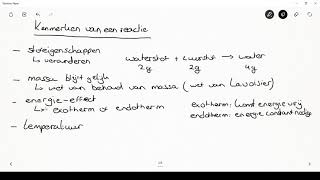 Kenmerken van een reactie
- stofeigenschappen
↳ veranderen
waterstof + zuurstof → water
2g 2g 4g
- massa blijft gelijk
↳ wet van behoud van massa (wet van Lavoisier)
- energie-effect
↳ exotherm of endotherm
exotherm: komt energie vrij
endotherm: energie constant nodig
- temperatuur